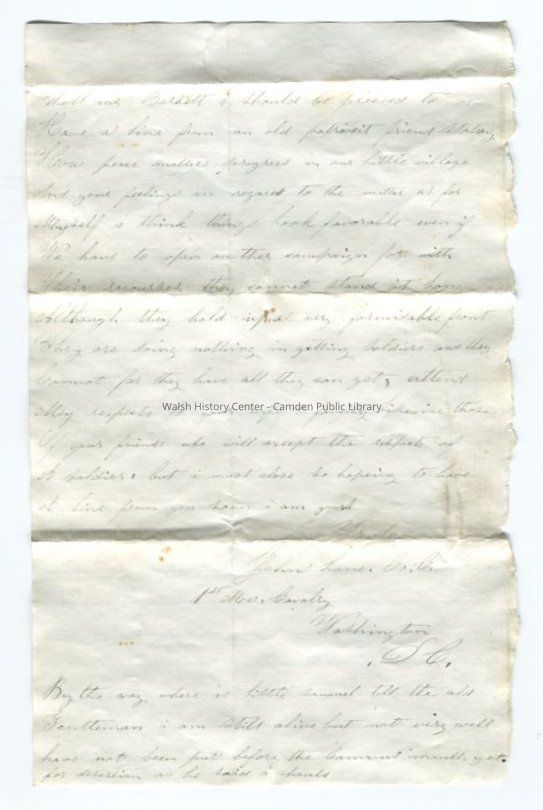 Well mr Barrett i should be pleased to
Have a line from an old patriot friend stating
How peace matters progress in our little village
And your feelings in regard to the matter as for
Myself i think things look favorable even if
We have to open another campaign for with
their recourses they cannot stand it long
Although they hold up a very formidable front
They are doing nothing in getting soldiers and they
Cannot for they have all they can get, extend
My respects to your family likewise those
Of your friends who will except the respects of
A soldier. but i must close so hopeing to have
A line from you soon i am yours
Truly
John Lane. Co.
1st Me. Cavalry
Washington
D C.
Walsh History Center - Camden Public Library
By the way where is little samuel tell the old
Gentleman i am still alive but not very well
have not been put before the Cannons mouth yet
for desertion as he said i should